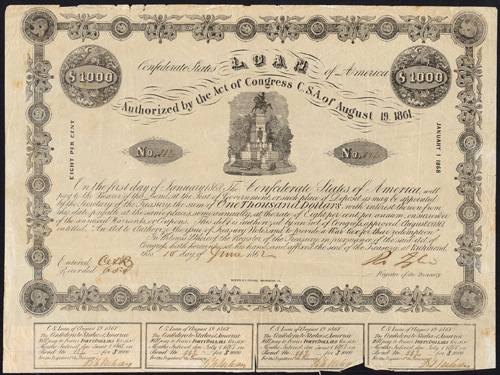 LOAN
Confederate States of America
$1000 $1000
Authorized by the Act of Congress C.S.A. of August 19. 1861.
EIGHT PER CENT
JANUARY 1 1868
No. 112 No. 112
On the first day of January 1868, The Confederate States of America, will
pay to the Bearer of this Bond, at the Seat of Government, or such place of Deposit as may be appointed
by the Secretary of the Treasury, the sum of One Thousand Dollars, with interest thereon from
this date, payable at the same place, semi annually, at the rate of Eight per cent per annum, on surrender
of the annexed Warrants or Coupons. This debt is authorized by an Act of Congress, approved August 19, 1861
entitled "An Act to Authorize the Issue of Treasury Notes, and to provide a War tax for their redemption."
In Witness Whereof the Register of the Treasury, in pursuance of the said Act of
Congress, hath hereunto set his hand, and affixed the seal of the Treasury, at Richmond,
this 10 day of June 1862
Entered
Recorded
Register of the Treasury
C.S. Loan of August 19, 1861
The Confederate States of America
Will pay to Bearer FORTY DOLLARS
Bond No. 112 for $1000
C.S. Loan of August 19, 1861
The Confederate States of America
Will pay to Bearer FORTY DOLLARS
Bond No. 112 for $1000
C.S. Loan of August 19, 1861
The Confederate States of America
Will pay to Bearer FORTY DOLLARS
Bond No. 112 for $1000
C.S. Loan of August 19, 1861
The Confederate States of America
Will pay to Bearer FORTY DOLLARS
Bond No. 112 for $1000